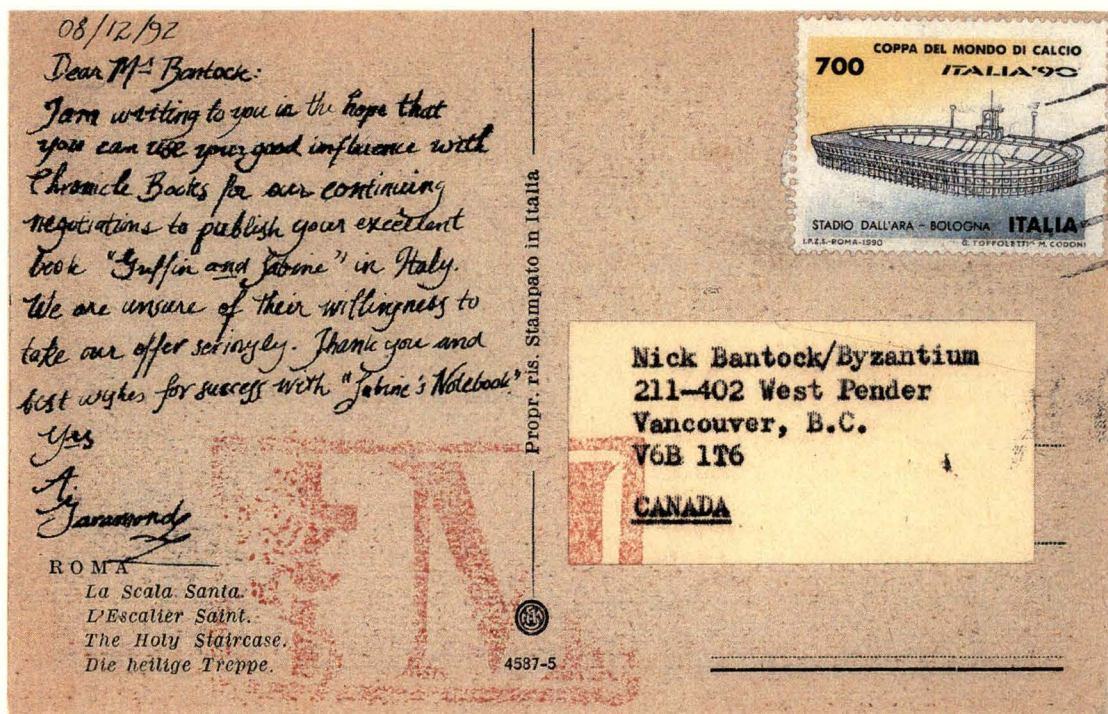 08/12/92
Dear Mr Bantock:
I am writing to you in the hope that
you can use your good influence with
Chronicle Books for our continuing
negotiations to publish your excellent
book "Griffin and Sabine" in Italy.
We are unsure of their willingness to
take our offer seriously. Thank you and
best wishes for success with "Sabine's Notebook".
Yrs
A.
Garamond
ROMA
La Scala Santa.
L'Escalier Saint.
The Holy Staircase.
Die heilige Treppe.
Propr. ris. Stampato in Italia
4587-5
COPPA DEL MONDO DI CALCIO
700 ITALIA'90
STADIO DALL'ARA - BOLOGNA ITALIA
I.P.Z.S.-ROMA-1990 G. TOFFOLETTI - M. CODONI
Nick Bantock/Byzantium
211-402 West Pender
Vancouver, B.C.
V6B 1T6
CANADA